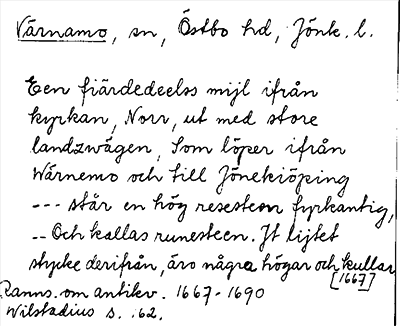 Värnamo, sn, Östbo hd, Jönk. l.
Een fiärdedeelss mijl ifrån
kyrkan, Norr, ut med store
landzwägen, Som löper ifrån
Wärnemo och till Jönekiöping
--- står en hög resesteen fyrkantig,
-- Och kallas runesteen. Jt lijtet
stycke derifrån, äro några högar och kullar
[1667]
Ranns. om antikv. 1667-1690
Wilstadius s. 162.